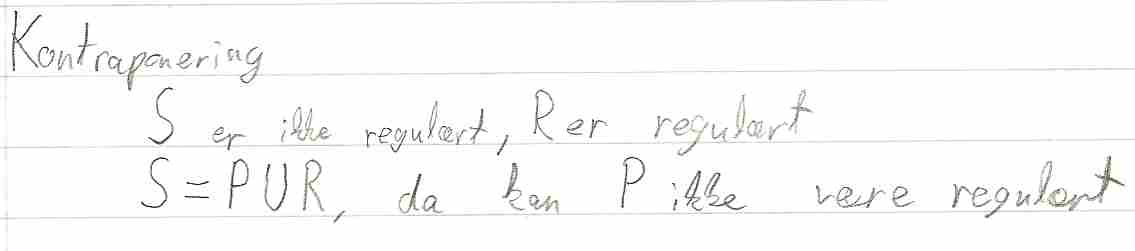 Kontraponering
S er ikke regulært, R er regulært
S = PUR, da kan P ikke være regulært